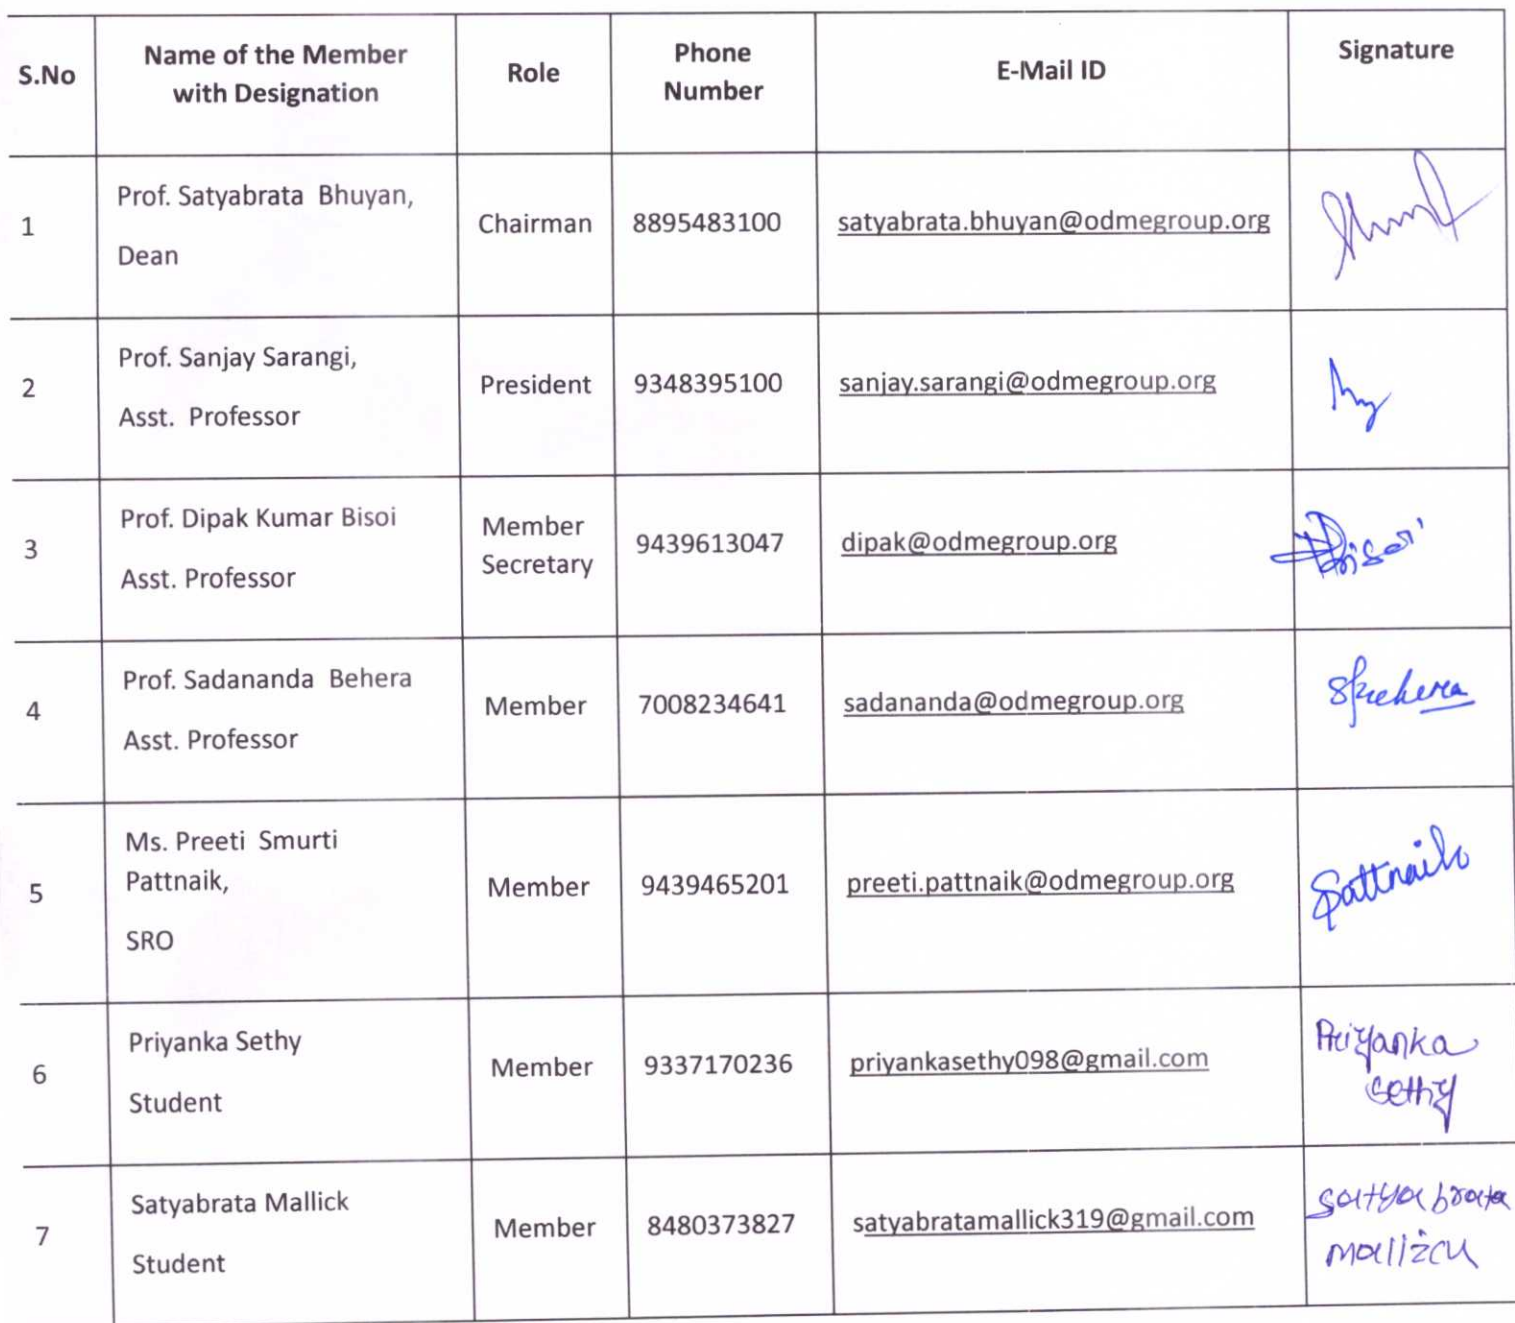 S.No Name of the Member with Designation Role Phone Number E-Mail ID Signature
1 Prof. Satyabrata Bhuyan, Dean Chairman 8895483100 satyabrata.bhuyan@odmegroup.org
2 Prof. Sanjay Sarangi, Asst. Professor President 9348395100 sanjay.sarangi@odmegroup.org
3 Prof. Dipak Kumar Bisoi Asst. Professor Member Secretary 9439613047 dipak@odmegroup.org Bisoi
4 Prof. Sadananda Behera Asst. Professor Member 7008234641 sadananda@odmegroup.org
5 Ms. Preeti Smurti Pattnaik, SRO Member 9439465201 preeti.pattnaik@odmegroup.org Pattnaik
6 Priyanka Sethy Student Member 9337170236 priyankasethy098@gmail.com Priyanka Sethy
7 Satyabrata Mallick Student Member 8480373827 satyabratamallick319@gmail.com Satyabrata